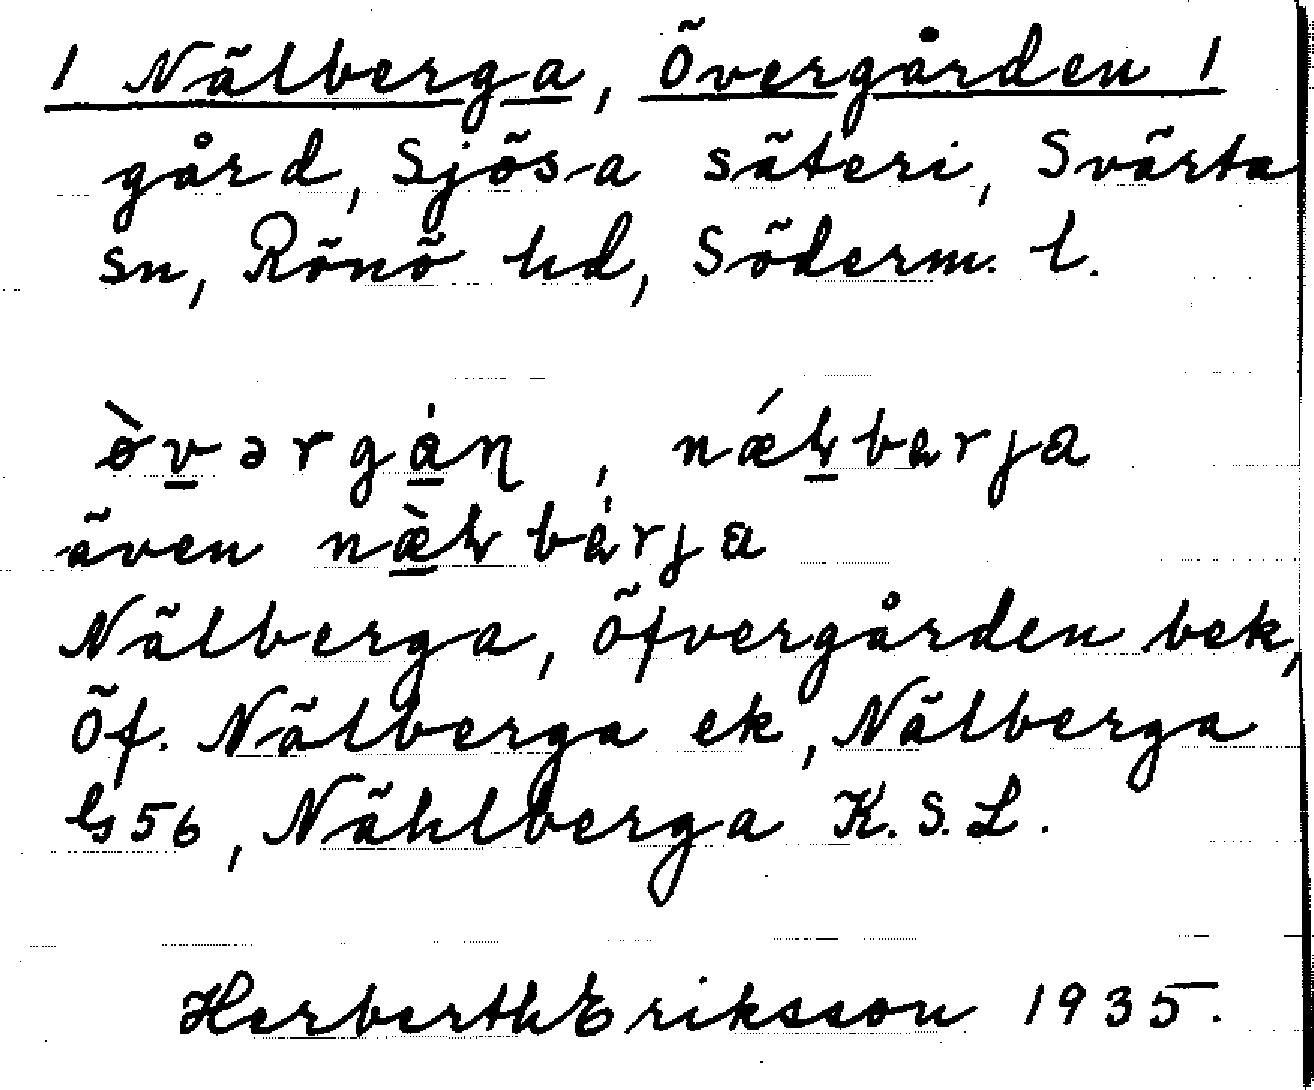 1 Nälberga, Övergården 1
gård, Sjösa säteri, Svärta
sn, Rönö hd, Söderm. l.
òvərgȧɳ , nǽɫbarja
även næ̀ɫbȧrja
Nälberga, Öfvergården bek,
Öf. Nälberga ek, Nälberga
Gs 56, Nählberga K.S.L.
Herberth Eriksson 1935.